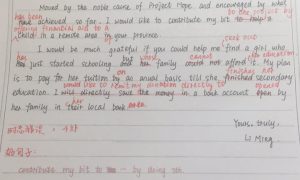 Moved by the noble cause of Project Hope and encouraged by what
has been to the project by
have achieved so far. I would like to contribute my bit to help a
offering financial aid to a
child in a remote area in your province.
seek out
I would be much grateful if you could help me find a girl who
whose cannot education
has just started schooling but her family could not afford it. My plan
finishes her
is to pay for her tuition on an annual basis till she finished secondary
would like to remit my donation directly to opened
education. I will directly send the money in a bank account open by
her
her family in their local bank.
Yours, truly,
Li Ming
contribute my bit to — by doing sth.